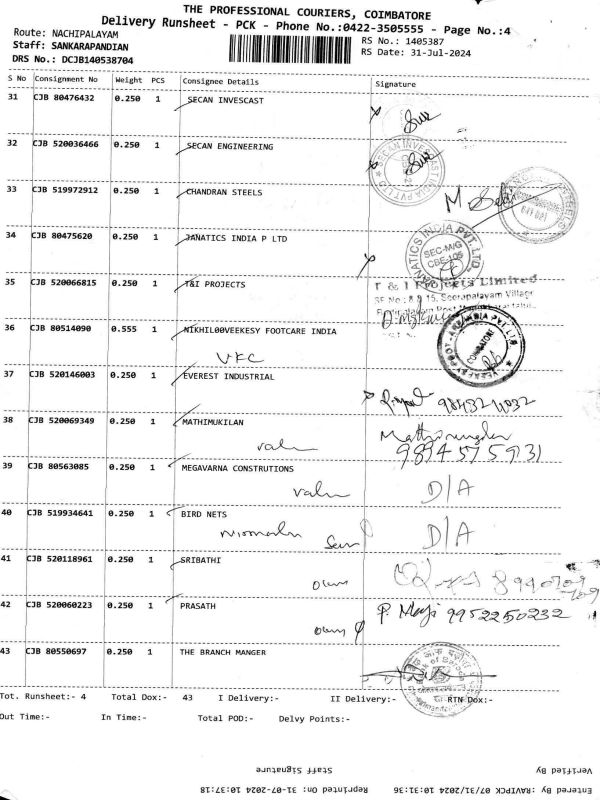 THE PROFESSIONAL COURIERS, COIMBATORE
Delivery Runsheet - PCK - Phone No.:0422-3505555 - Page No.:4
Route: NACHIPALAYAM
RS No.: 1405387
Staff: SANKARAPANDIAN
RS Date: 31-Jul-2024
DRS No.: DCJB140538704
S No Consignment No Weight PCS Consignee Details Signature
31 CJB 80476432 0.250 1 SECAN INVESCAST
32 CJB 520036466 0.250 1 SECAN ENGINEERING
SECAN INVESCAST INDIA PVT LTD
33 CJB 519972912 0.250 1 CHANDRAN STEELS
34 CJB 80475620 0.250 1 JANATICS INDIA P LTD
JANATICS INDIA PVT. LTD.
SEC-M/G
CBE-109
35 CJB 520066815 0.250 1 T&I PROJECTS
T & I Projects Limited
SF No : 8 & 15, Seerapalayam Village
36 CJB 80514090 0.555 1 NIKHIL00VEEKESY FOOTCARE INDIA
VKC
COIMBATORE
37 CJB 520146003 0.250 1 EVEREST INDUSTRIAL
38 CJB 520069349 0.250 1 MATHIMUKILAN
9894575931
39 CJB 80563085 0.250 1 MEGAVARNA CONSTRUTIONS
D/A
40 CJB 519934641 0.250 1 BIRD NETS
D/A
41 CJB 520118961 0.250 1 SRIBATHI
42 CJB 520060223 0.250 1 PRASATH
9952250232
43 CJB 80550697 0.250 1 THE BRANCH MANGER
Tot. Runsheet:- 4 Total Dox:- 43 I Delivery:- II Delivery:- RTN Dox:-
Out Time:- In Time:- Total POD:- Delvy Points:-
Staff Signature Verified By
Reprinted On: 31-07-2024 10:37:18 Entered By :RAVIPCK 07/31/2024 10:31:36